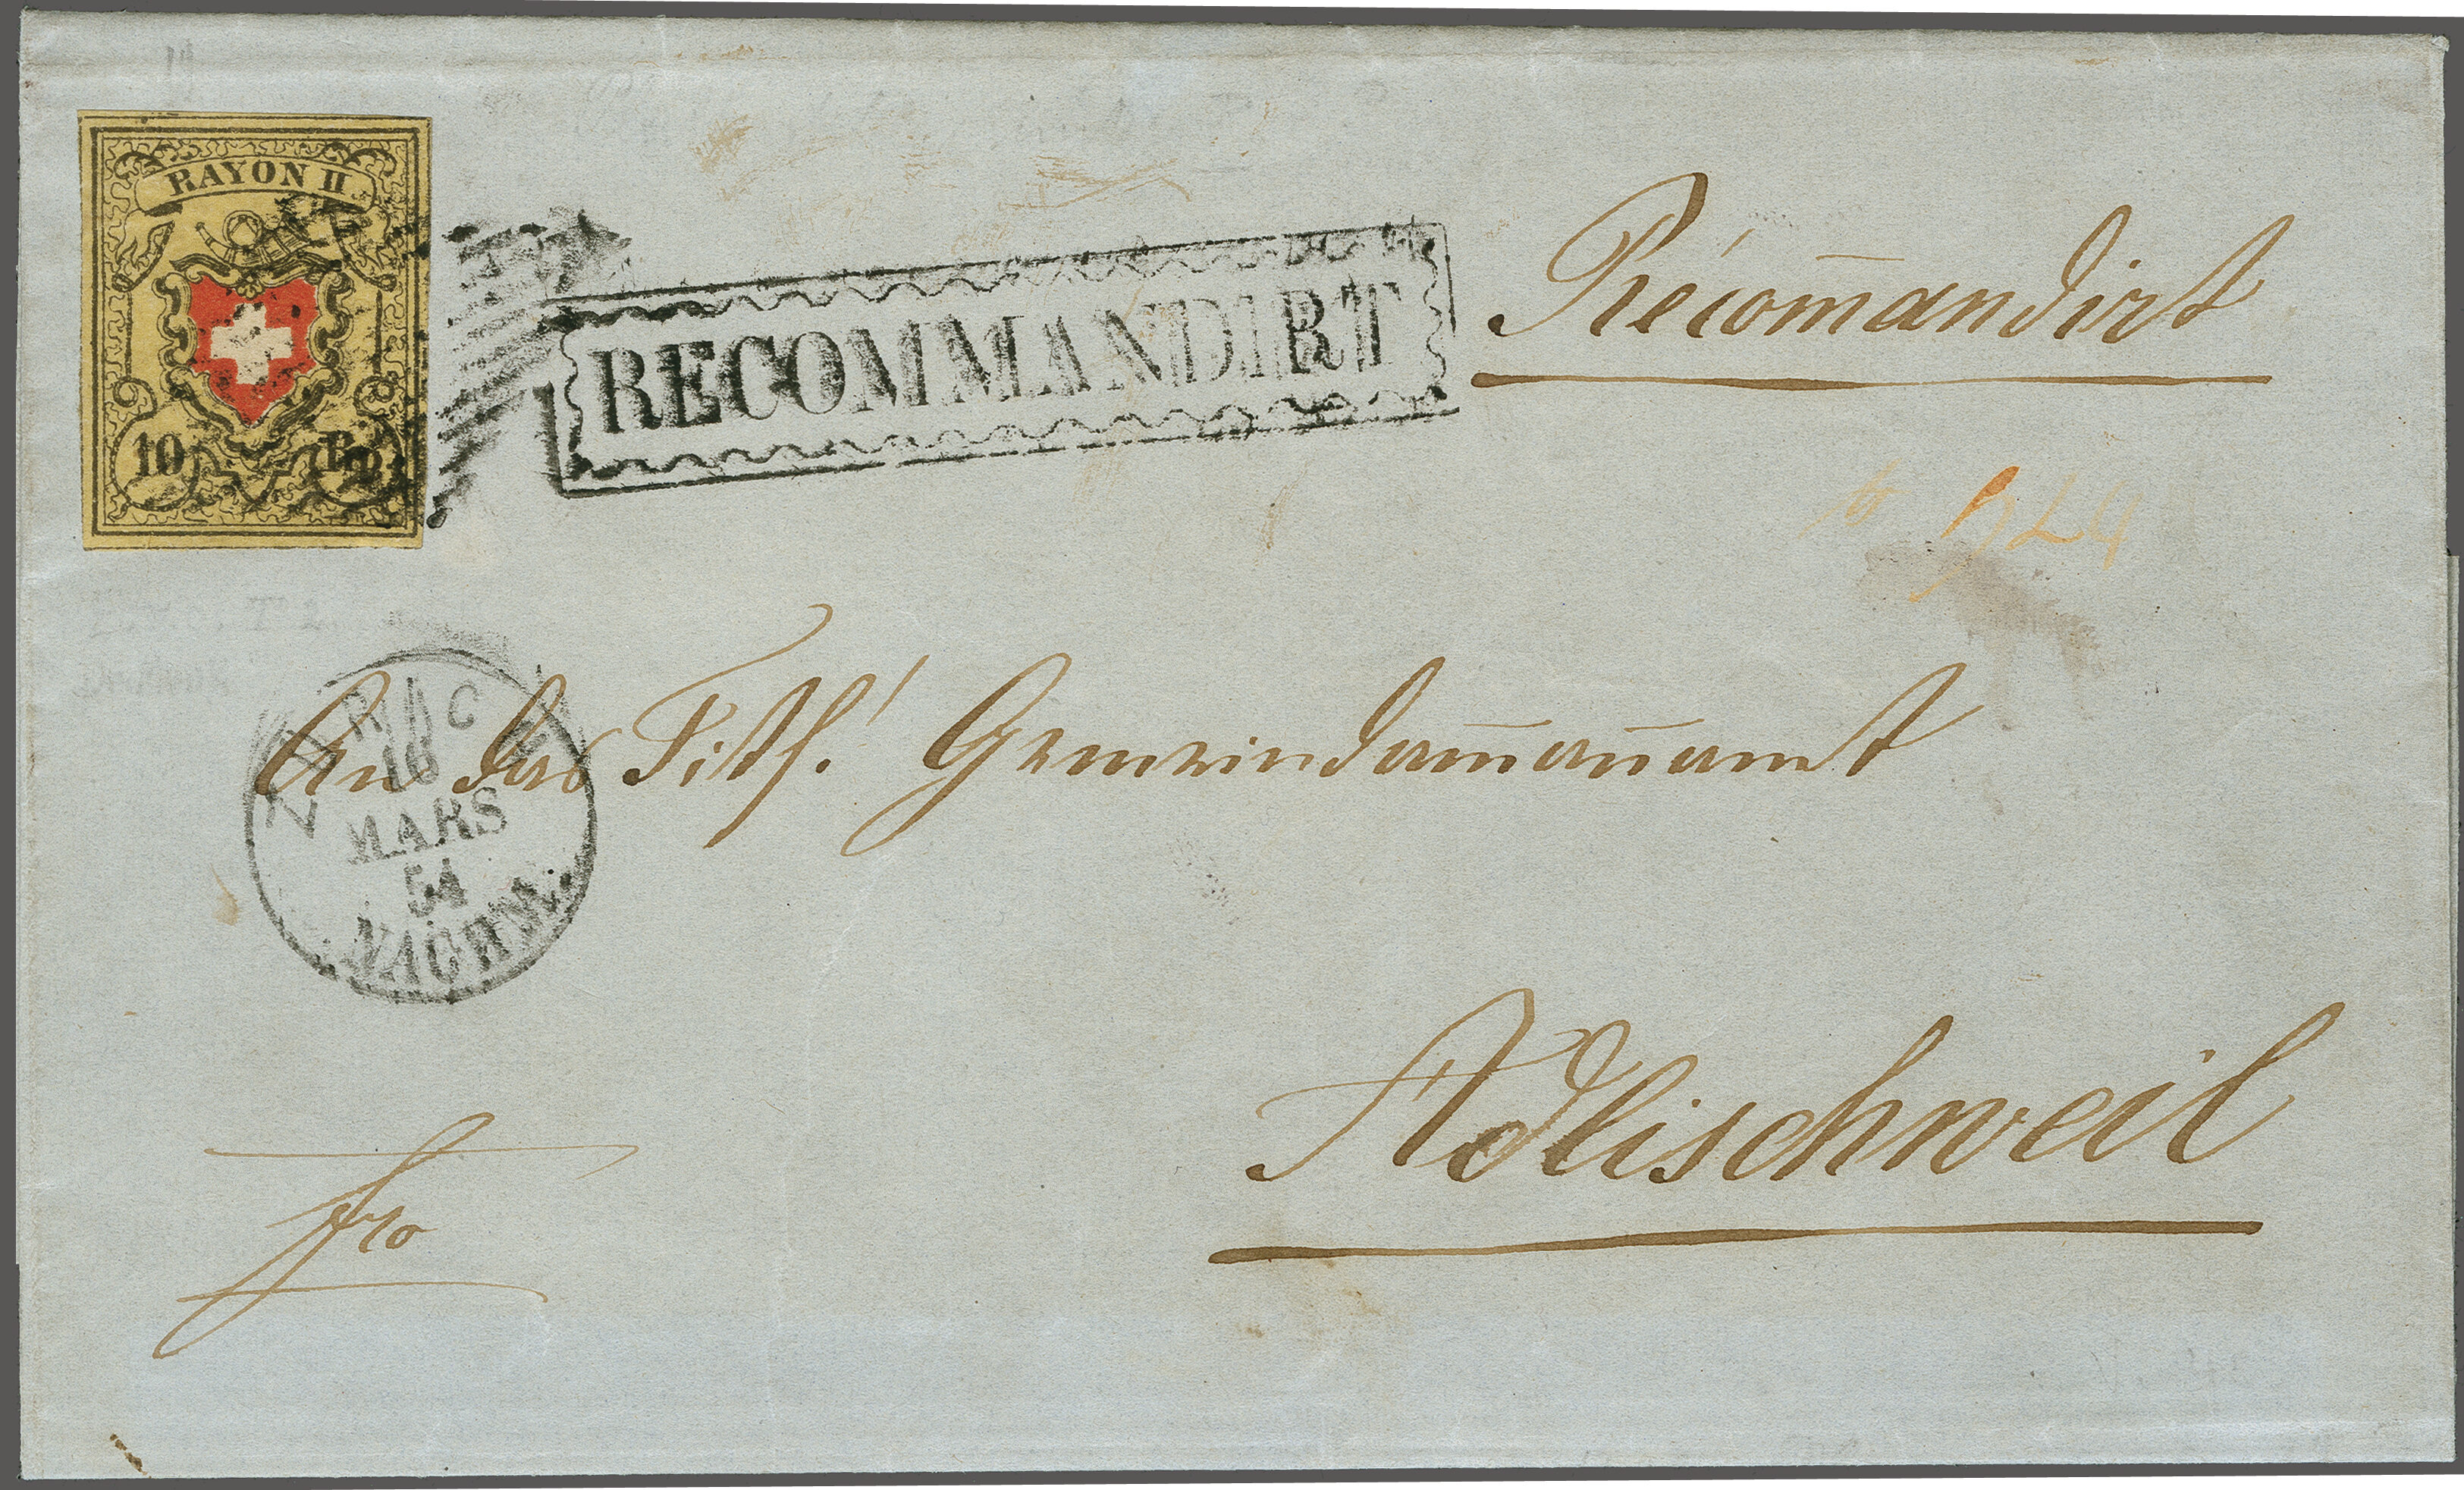 RAYON II
10 Rp.
RECOMMANDIRT
Recom̄andirt
ZÜRICH
16
MARS
54
NACHM.
An das Titl. Gemeindam̄an̄amt
Adlischweil
fro